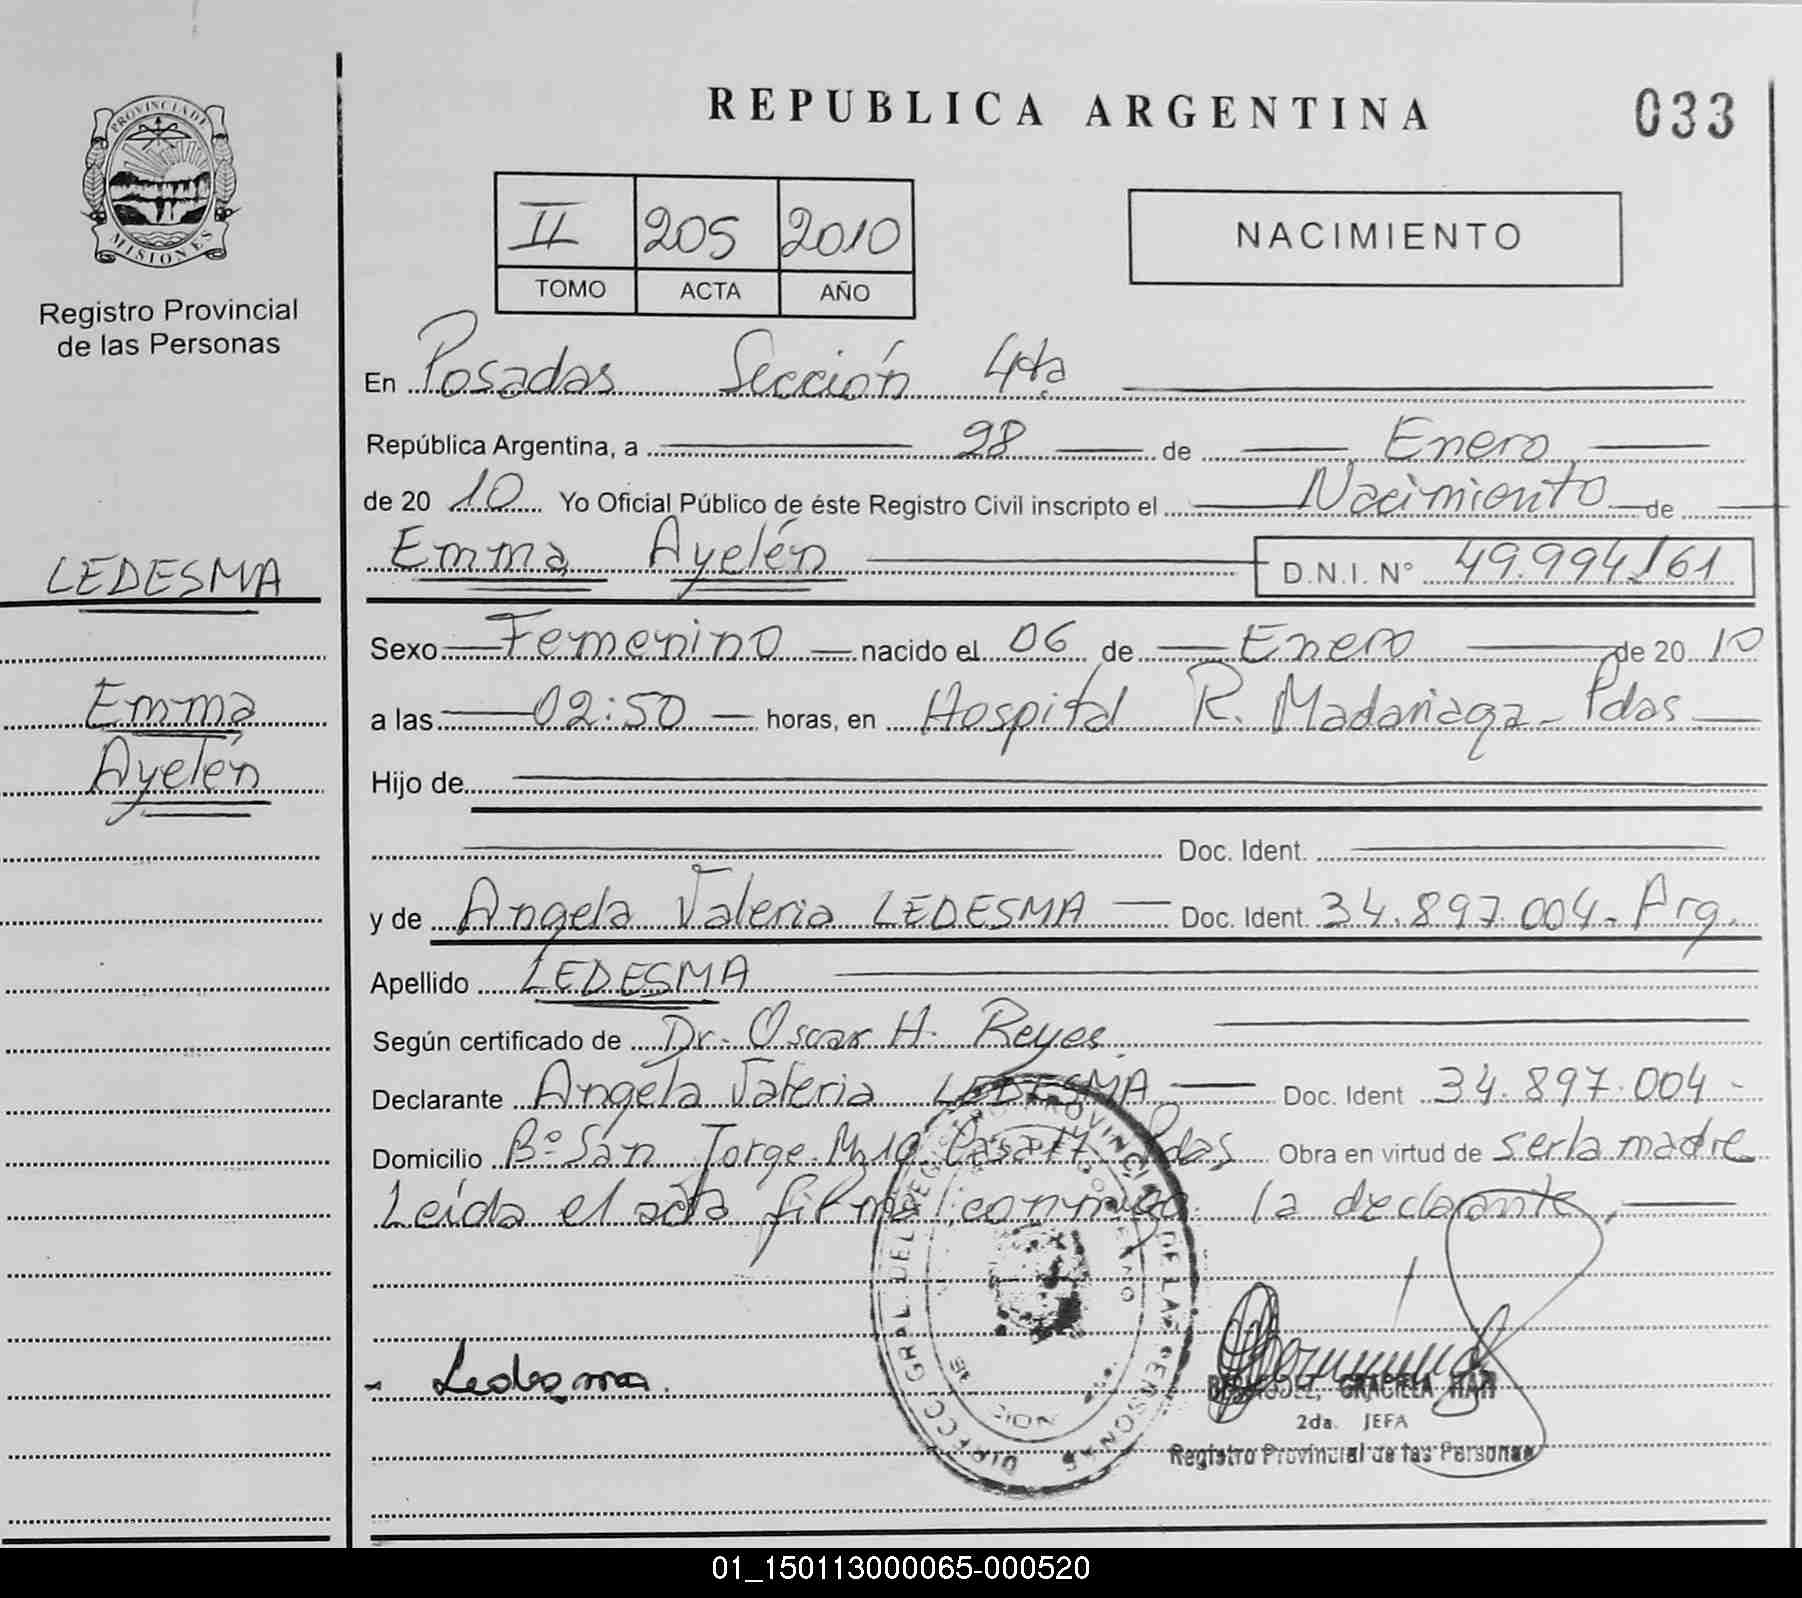 REPUBLICA ARGENTINA
033
PROVINCIA DE
MISIONES
Registro Provincial
de las Personas
II 205 2010
TOMO ACTA AÑO
NACIMIENTO
En Posadas Sección 4ta
República Argentina, a 28 de Enero
de 2010 Yo Oficial Público de éste Registro Civil inscripto el Nacimiento de
LEDESMA
Emma Ayelén D.N.I. Nº 49.994.161
Sexo Femenino nacido el 06 de Enero de 2010
Emma
a las 02:50 horas, en Hospital R. Madariaga - Pdas
Ayelén
Hijo de
Doc. Ident.
y de Angela Valeria LEDESMA Doc. Ident. 34.897.004 - Arg.
Apellido LEDESMA
Según certificado de Dr. Oscar H. Reyes
Declarante Angela Valeria LEDESMA Doc. Ident 34.897.004 -
Domicilio Bº San Jorge Mz 10 Casa 17 Pdas Obra en virtud de ser la madre
Leída el acta firma conmigo la declarante,
DIRECC. GRAL. DEL REGISTRO PROVINCIAL DE LAS PERSONAS
- Ledesma.
GRACIELA MARI
2da. JEFA
Registro Provincial de las Personas
01_150113000065-000520